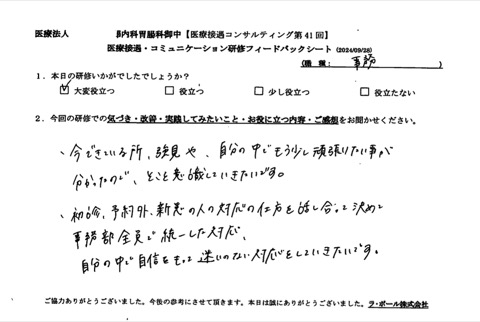 医療法人 内科胃腸科御中【医療接遇コンサルティング第41回】
医療接遇・コミュニケーション研修フィードバックシート (2024/09/28)
(職 種: 事務 )
1.本日の研修いかがでしたでしょうか?
☑ 大変役立つ □ 役立つ □ 少し役立つ □ 役立たない
2.今回の研修での気づき・改善・実践してみたいこと・お役に立つ内容・ご感想をお聞かせください。
・今できている所、強見や、自分の中でもう少し頑張りたい事が
分かったので、そこを意識していきたいです。
・初診、予約外、新患の人の対応の仕方を話し合って決めて
事務部全員で統一した対応、
自分の中で自信をもって迷いのない対応をしていきたいです。
ご協力ありがとうございました。今後の参考にさせて頂きます。本日は誠にありがとうございました。ラ・ポール株式会社